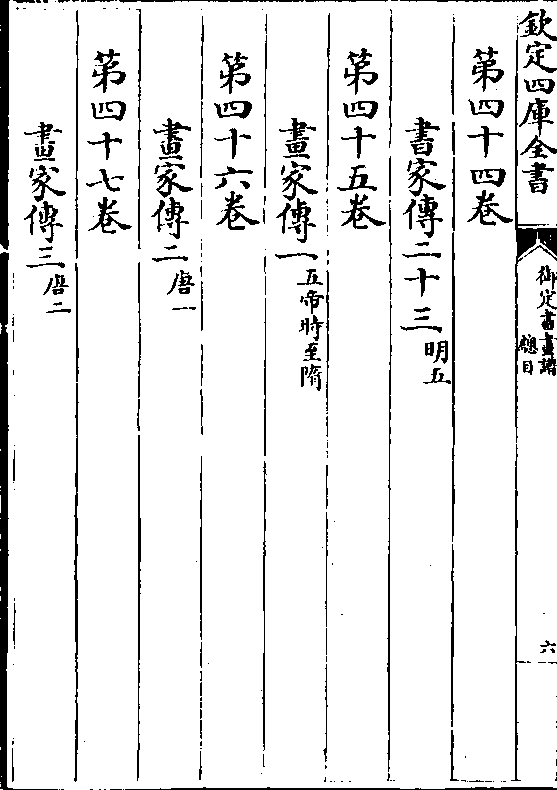 欽定四庫全書
御定書畫譜
總目
六
第四十四卷
書家傳二十三明五
第四十五卷
畫家傳一五帝時至隋
第四十六卷
畫家傳二唐一
第四十七卷
畫家傳三唐二